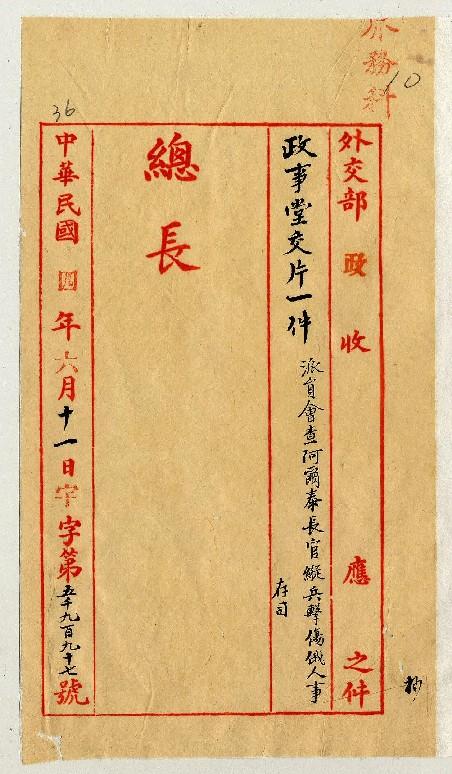 務科
10
36
外交部 政 收 應 之件
政事堂交片一件
派員會查阿爾泰長官縱兵擊傷俄人事
存司
總長
中華民國四年六月十一日宇字第五千九百九十七號